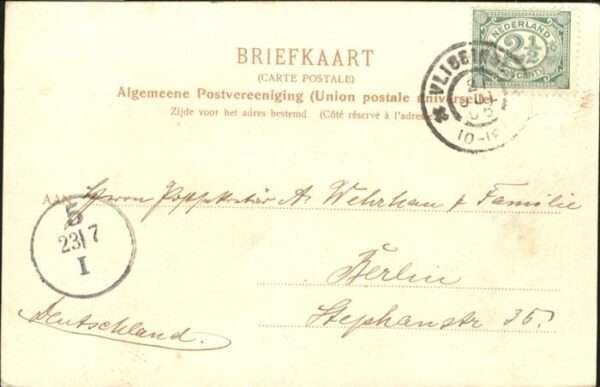 NEDERLAND
2½
CENT
BRIEFKAART
(CARTE POSTALE)
Algemeene Postvereeniging (Union postale universelle)
Zijde voor het adres bestemd. (Côté réservé à l'adresse
VLISSIN
10-1
AAN
Herrn Postsekretär A. Wehrhan & Familie
Berlin
Stephanstr 35.
Deutschland.
5
23 7
I